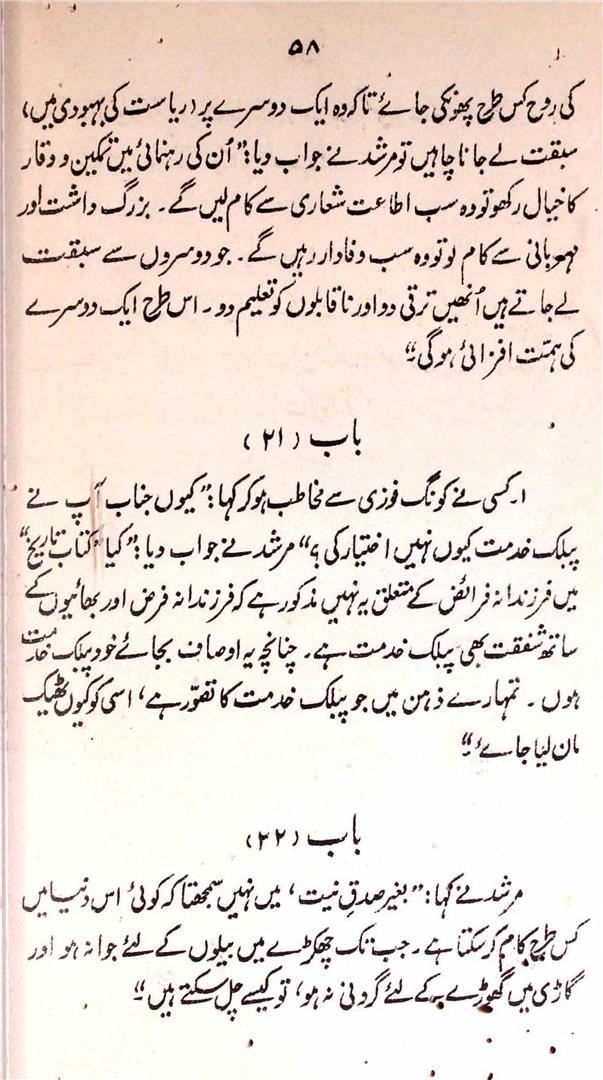 ۵۸
کی روح کس طرح پھونکی جائے تاکہ وہ ایک دوسرے پر (ریاست کی بہبودی میں)
سبقت لے جانا چاہیں تو مرشد نے جواب دیا: "اُن کی رہنمائی میں تمکین و وقار
کا خیال رکھو تو وہ سب اطاعت شعاری سے کام لیں گے۔ بزرگ داشت اور
مہربانی سے کام لو تو وہ سب وفادار رہیں گے۔ جو دوسروں سے سبقت
لے جاتے ہیں اُنھیں ترقی دو اور ناقابلوں کو تعلیم دو۔ اس طرح ایک دوسرے
کی ہمّت افزائی ہوگی۔"
باب (۲۱)
۱۔ کسی نے کونگ فوزی سے مخاطب ہو کر کہا: "کیوں جناب آپ نے
پبلک خدمت کیوں نہیں اختیار کی؟" مرشد نے جواب دیا: "کیا "کتاب تاریخ"
میں فرزندانہ فرائض کے متعلق یہ نہیں مذکور ہے کہ فرزندانہ فرض اور بھائیوں کے
ساتھ شفقت بھی پبلک خدمت ہے۔ چنانچہ یہ اوصاف بجائے خود پبلک خدمت
ہوں۔ تمہارے ذہن میں جو پبلک خدمت کا تصوّر ہے، اسی کو کیوں ٹھیک
مان لیا جائے۔"
باب (۲۲)
مرشد نے کہا: "بغیر صدقِ نیت، میں نہیں سمجھتا کہ کوئی اس دنیا میں
کس طرح کام کر سکتا ہے۔ جب تک چھکڑے میں بیلوں کے لئے جوا نہ ہو اور
گاڑی میں گھوڑے کے لئے گردنی نہ ہو، تو کیسے چل سکتے ہیں۔"